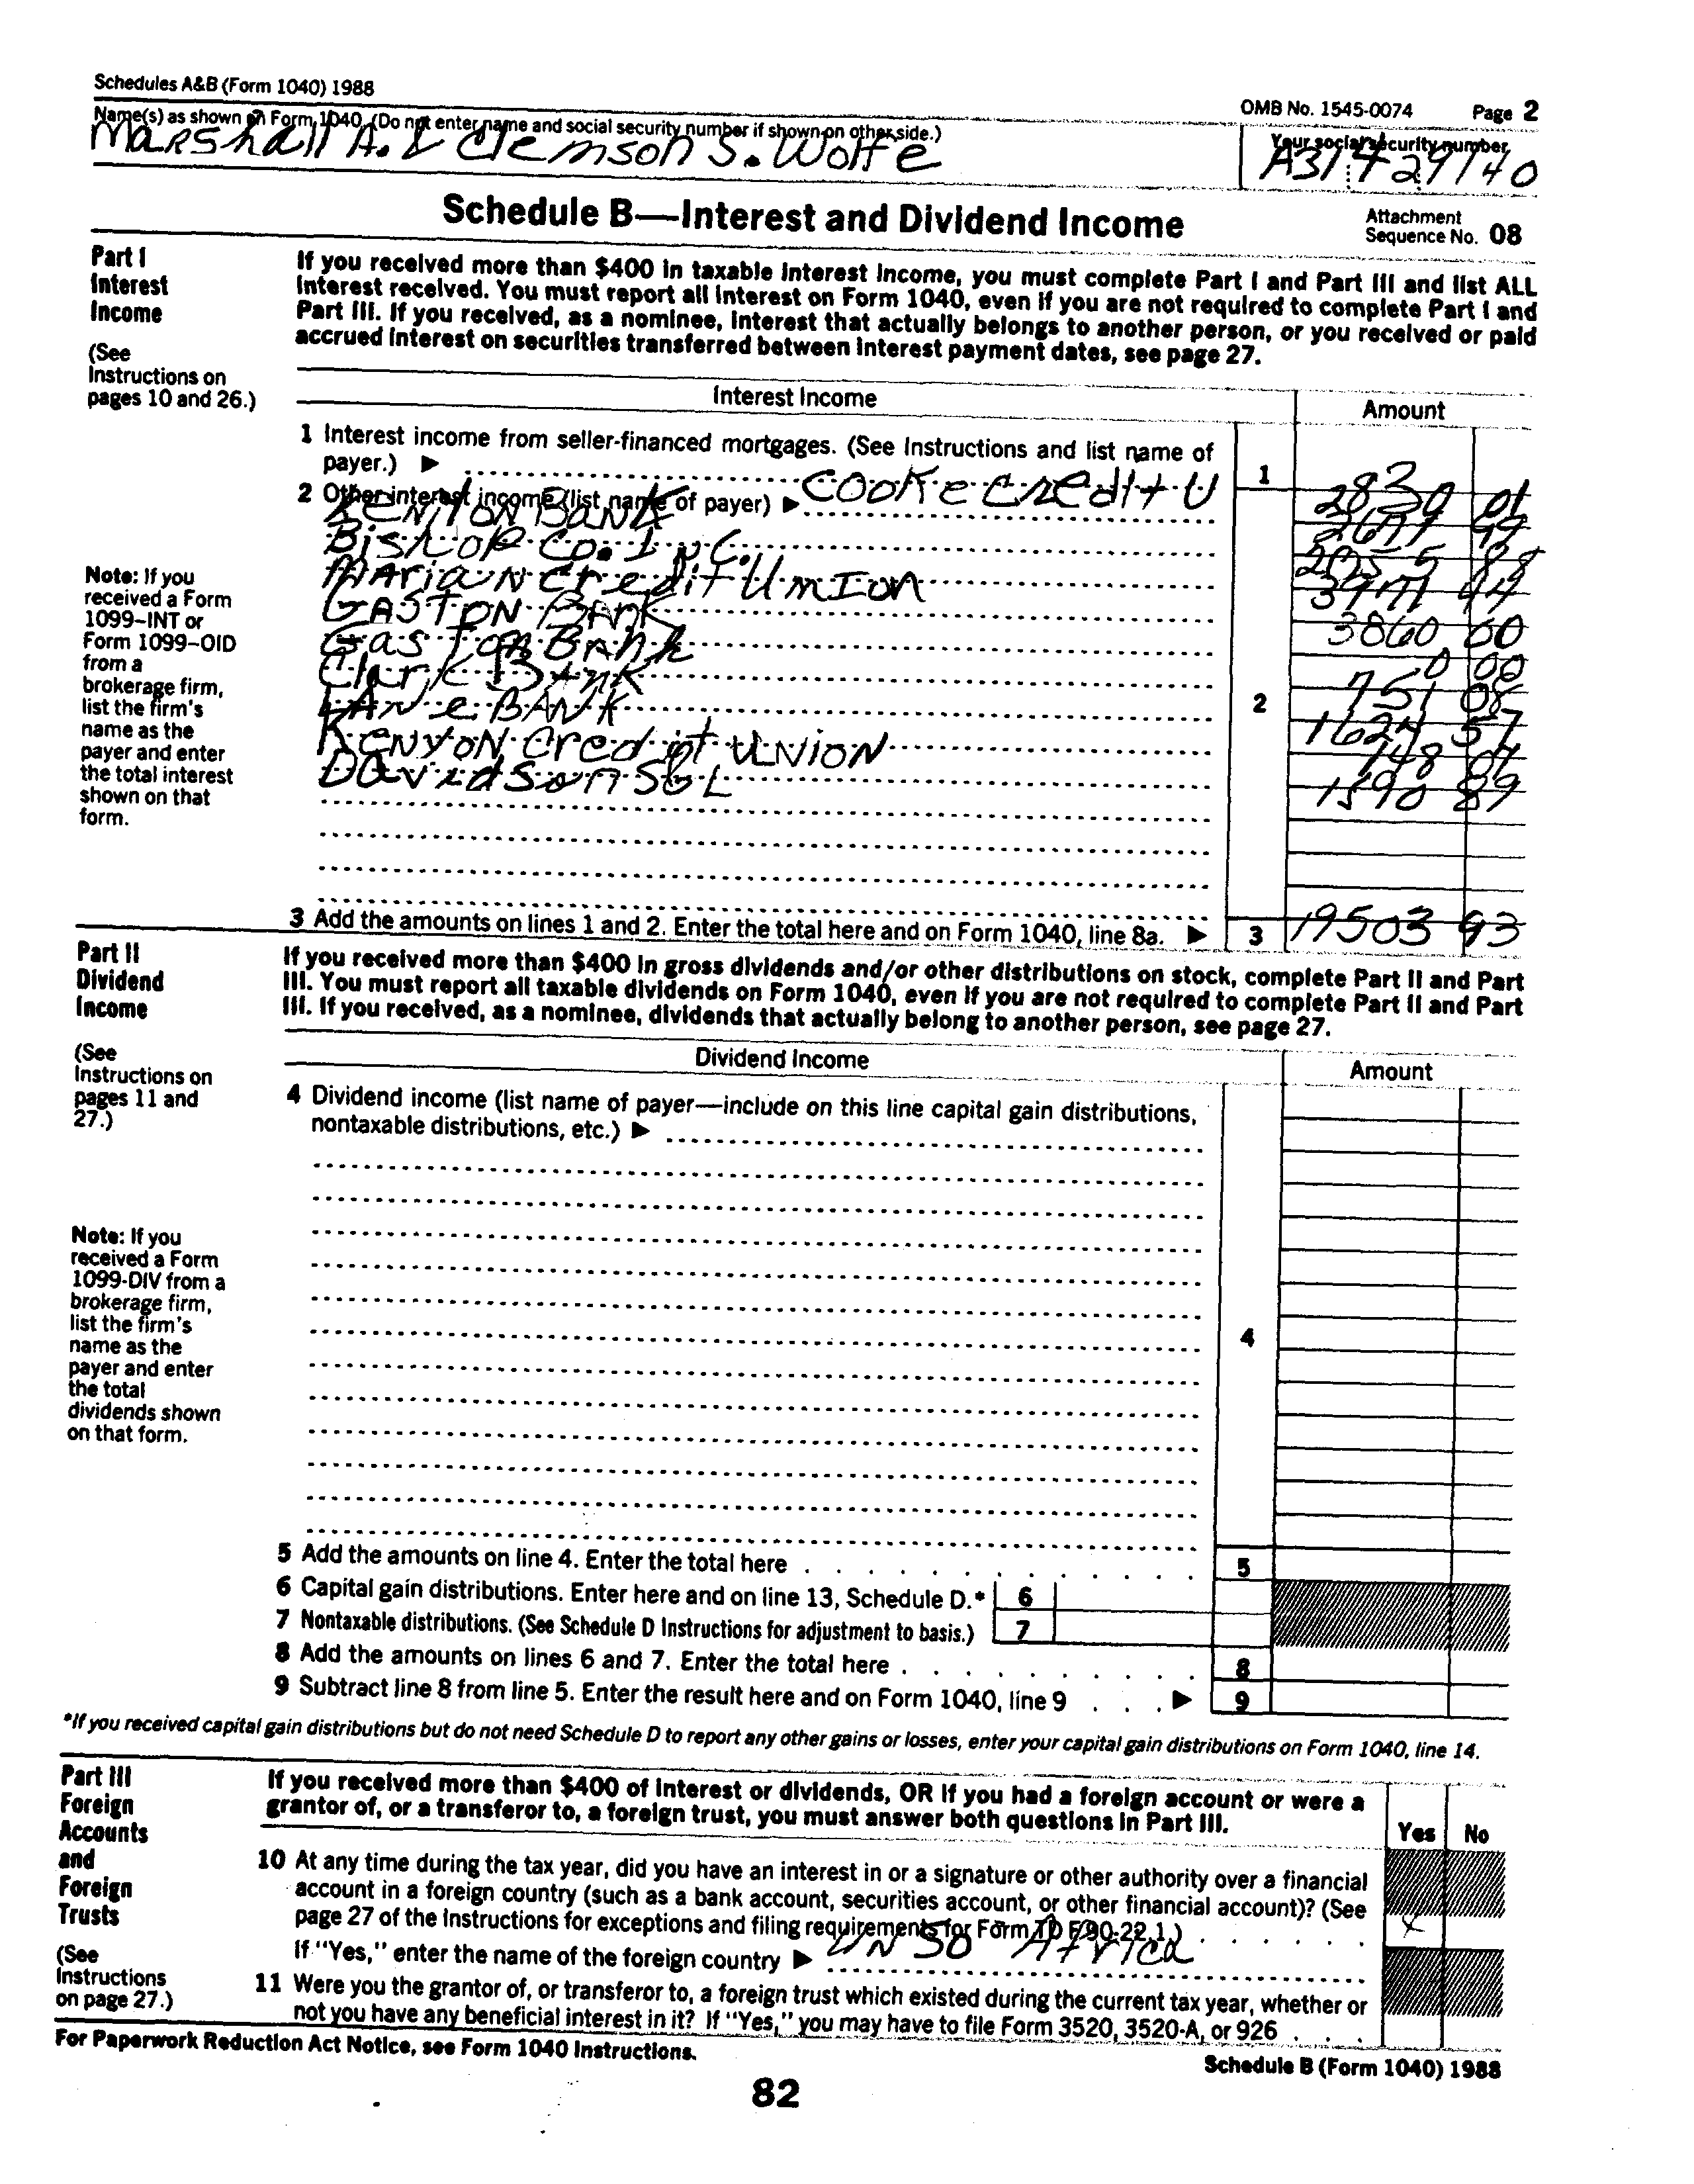 Schedules A&B (Form 1040) 1988
OMB No. 1545-0074 Page 2
Name(s) as shown on Form 1040. (Do not enter name and social security number if shown on other side.)
Your social security number
Marshall A. & Clemson S. Wolfe
Schedule B—Interest and Dividend Income
Attachment
Sequence No. 08
Part I
Interest
Income
(See
Instructions on
pages 10 and 26.)
If you received more than $400 in taxable interest income, you must complete Part I and Part III and list ALL
interest received. You must report all interest on Form 1040, even if you are not required to complete Part I and
Part III. If you received, as a nominee, interest that actually belongs to another person, or you received or paid
accrued interest on securities transferred between interest payment dates, see page 27.
Interest Income Amount
1 Interest income from seller-financed mortgages. (See Instructions and list name of
payer.) ▶ 1
2 Other interest income (list name of payer) ▶ Cooke Credit U 2830 01
Bank
Bishop Co. Inc.
Marian Credit Umion
Gaston Bank 3860 00
Gaston Bank 0 00
Clark Bank 751 08
Lane BANK 1624 57
Kenyon Credit UNION 148 07
Davidson S&L 1590 89
2
Note: If you
received a Form
1099–INT or
Form 1099–OID
from a
brokerage firm,
list the firm's
name as the
payer and enter
the total interest
shown on that
form.
3 Add the amounts on lines 1 and 2. Enter the total here and on Form 1040, line 8a. ▶ 3 19503 93
Part II
Dividend
Income
(See
Instructions on
pages 11 and
27.)
If you received more than $400 in gross dividends and/or other distributions on stock, complete Part II and Part
III. You must report all taxable dividends on Form 1040, even if you are not required to complete Part II and Part
III. If you received, as a nominee, dividends that actually belong to another person, see page 27.
Dividend Income Amount
4 Dividend income (list name of payer—include on this line capital gain distributions,
nontaxable distributions, etc.) ▶
4
Note: If you
received a Form
1099-DIV from a
brokerage firm,
list the firm's
name as the
payer and enter
the total
dividends shown
on that form.
5 Add the amounts on line 4. Enter the total here 5
6 Capital gain distributions. Enter here and on line 13, Schedule D.* 6
7 Nontaxable distributions. (See Schedule D Instructions for adjustment to basis.) 7
8 Add the amounts on lines 6 and 7. Enter the total here 8
9 Subtract line 8 from line 5. Enter the result here and on Form 1040, line 9 ▶ 9
*If you received capital gain distributions but do not need Schedule D to report any other gains or losses, enter your capital gain distributions on Form 1040, line 14.
Part III
Foreign
Accounts
and
Foreign
Trusts
(See
Instructions
on page 27.)
If you received more than $400 of interest or dividends, OR if you had a foreign account or were a
grantor of, or a transferor to, a foreign trust, you must answer both questions in Part III.
Yes No
10 At any time during the tax year, did you have an interest in or a signature or other authority over a financial
account in a foreign country (such as a bank account, securities account, or other financial account)? (See
page 27 of the Instructions for exceptions and filing requirements for Form TD F 90-22.1.) X
If "Yes," enter the name of the foreign country ▶ UN SO Africa
11 Were you the grantor of, or transferor to, a foreign trust which existed during the current tax year, whether or
not you have any beneficial interest in it? If "Yes," you may have to file Form 3520, 3520-A, or 926
For Paperwork Reduction Act Notice, see Form 1040 Instructions.
Schedule B (Form 1040) 1988
82